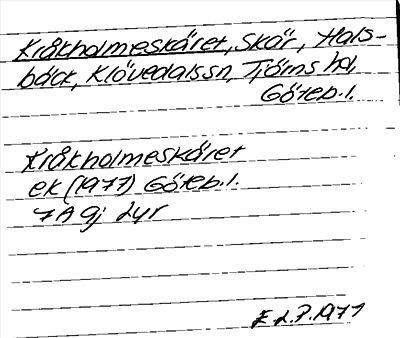 Kråkholmeskäret, Skär, Hals-
bäck, Klövedalssn, Tjörns hd,
Göteb. l.
Kråkholmeskäret
ek (1977) Göteb. l.
7A 9j Lyr
E L.P. 1977